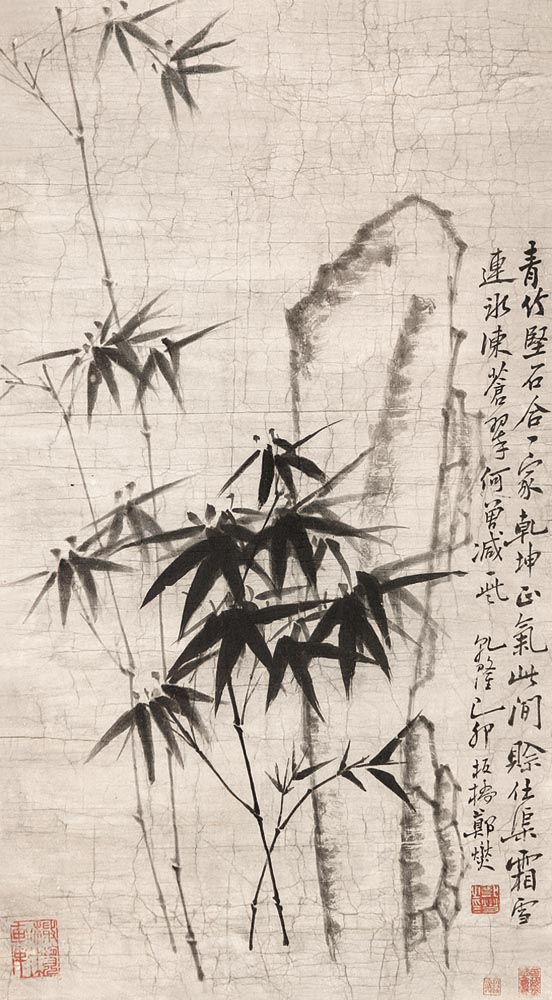 青竹堅石合一家乾坤正氣此間賒任渠霜雪
連冰凍蒼翠何曾減一些 乾隆己卯板橋鄭燮